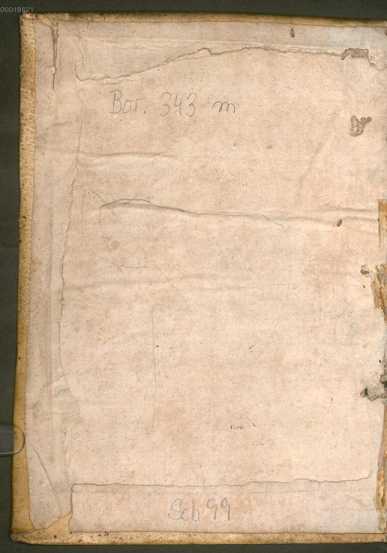 00019821
Bav. 343 m
99